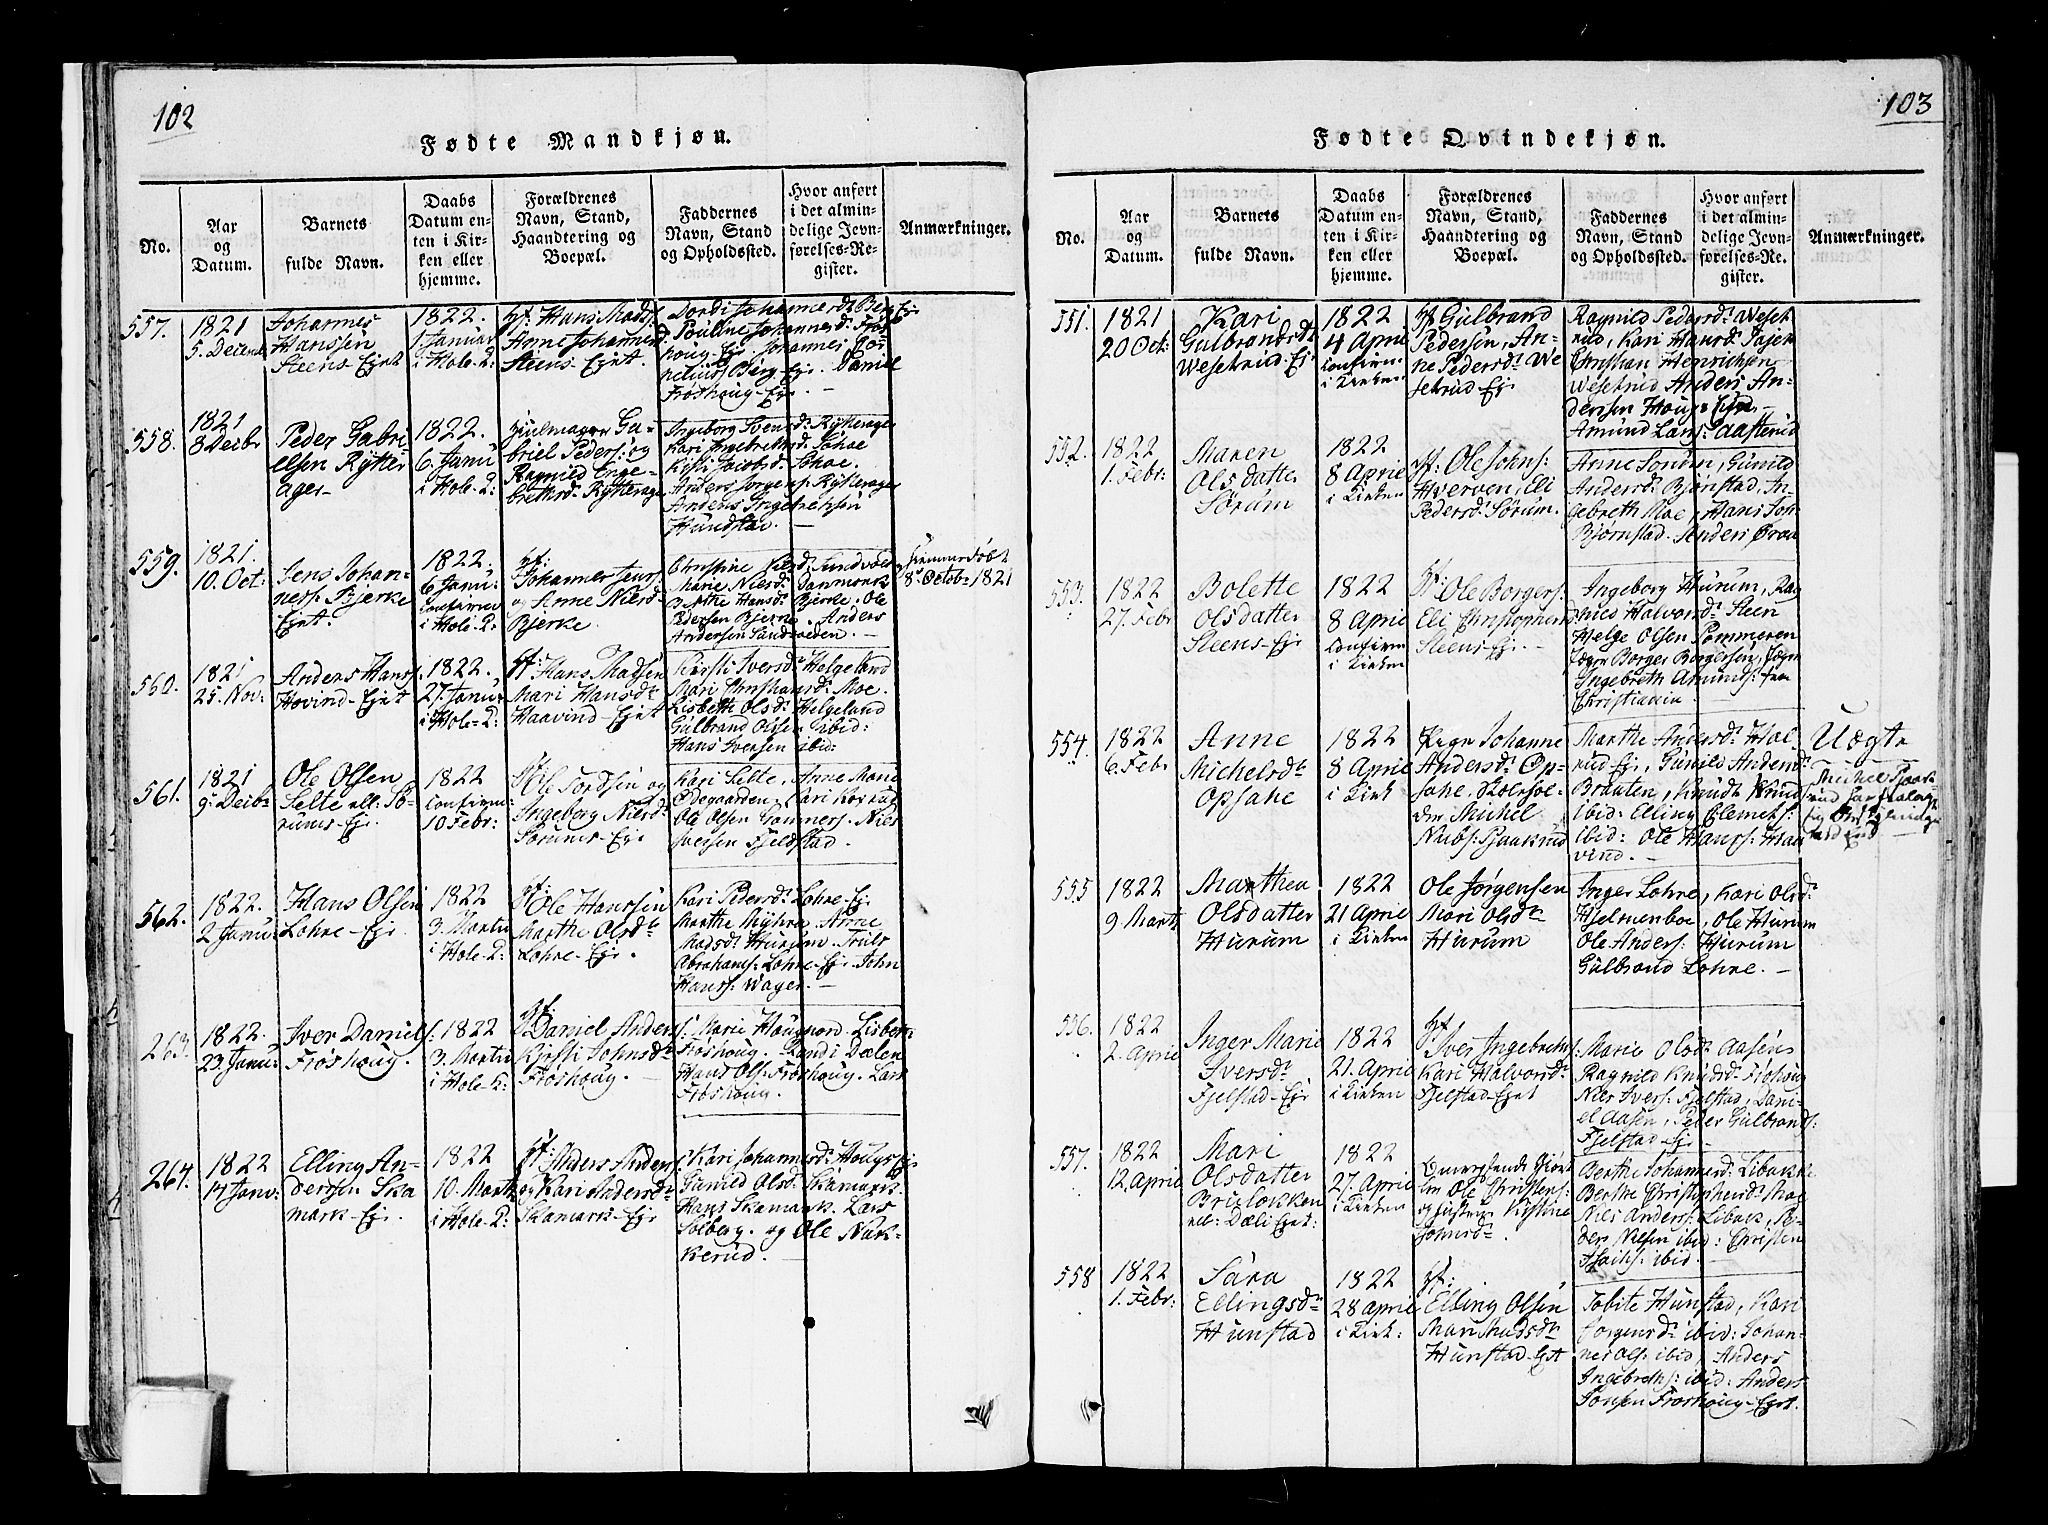 102
Fødte Mandkjøn.
No.
Aar
og
Datum.
Barnets
fulde Navn.
Daabs
Datum en-
ten i Kir-
ken eller
hjemme.
Forældrenes
Navn, Stand,
Haandtering og
Boepæl.
Faddernes
Navn, Stand
og Opholdssted.
Hvor anført
i det almin-
delige Jevn-
førelses-Re-
gister.
Anmærkninger.
557.
1821
5. Decemb
Johannes
Hanssen
Steens-Ejet
1822.
1. Januar
i Hole-K:
Hf: Hans Mads:
Anne Johannesd
Steens-Ejet.
Dordi Johannesd: Berg Ej
Pouline Johannesd: Frøs-
houg-Ej. Johannes Cor-
nelius: Berg-Ej. Daniel
Frøshoug-Ej. -
558.
1821
8 Decbr
Peder Gabri
elsen Rytter
ager-
1822.
6. Janu
i Hole-K:
Hjulmager Ga-
briel Peders: og
Ragnild Enge-
bretsd: Rytterage
Ingeborg Svensd: Rytterager
Kari Ingebretsd: Lohne
Kisti Jacobsd:
Anders Jørgens: Rytterager
Anders Ingebretsen
Hundstad. -
559.
1821.
10. Oct:
Jens Johan-
ness: Bjerke
Ejet.
1822.
6 Janu:
Confirm
i Hole-K:
Hf:
Johannes Jens:
og Anne Nielsd:
Bjerke.
Christine Sundvold
Marie Nielsd: Danmark
Berthe Hansd: Bjerke. Ole
Pedersen Bjerke. Anders
Andersen Sundveden. -
Hjemmedøbt
8de Octobr 1821
560.
1821
25. Nov:
Anders Hans:
Hovind-Ejet
1822.
27. Janu
i Hole-K:
Hf: Hans Madsen
Mari Hansdtr
Haavind-Ejet
Kirsti Iversd: Helgeland
Mari Christiansd: Moe.
Lisbeth Olsd: Helgeland
Gulbrand Olsen ibid:
Hans Iversen ibid:
561.
1821
9. Decbr
Ole Olsen
Selte ell: Sø-
rums-Ej.
1822
Confirm:
10 Febr:
Hf
Ole Tordsen og
Ingeborg Nielsd:
Sørums-Ej.
Kari Selte, Anne Marie
Ødegaarden, Kari
Ole Olsen Gommers. Niels
Iversen Fjeldstad.
562.
1822.
2 Janu:
Hans Olsen
Lohne-Ej.
1822
3. Martii
i Hole-K:
Hf:
Ole Hanssen
Marthe Olsdtr
Lohne-Ej.
Kari Pedersd: Lohne-Ej
Marthe Myhre. Anne
Madsd: Hurum. Truls
Abrahams: Lohne-Ej. John
Hans: Wager. -
263.
1822.
23. Janu:
Iver Daniels:
Frøshoug.
1822
3. Martii
i Hole-K:
Hf.
Daniel Anders:
Kirsti Johnsdtr
Frøshoug.
Marie Hougnord. Lisbeth
Frøshoug. Randi Dælen
Hans Ols: Frøshoug. Lars
Frøshoug.
264.
1822
14 Janu:
Elling An-
dersen Ska
mark-Ej.
1822
10. Martii
i Hole-K:
Hf: Anders Anders:
og Kari Andersdtr
Skamark-Ej.
Kari Johannesd: Hougs Ej
Gunild Olsd: Skamark.
Hans Skamark. Lars
Solberg. og Ole Nak-
kerud. -
103
Fødte Qvindekjøn.
No.
Aar
og
Datum.
Barnets
fulde Navn.
Daabs
Datum en-
ten i Kir-
ken eller
hjemme.
Forældrenes
Navn, Stand,
Haandtering og
Boepæl.
Faddernes
Navn, Stand
og Opholdssted.
Hvor anført
i det almin-
delige Jevn-
førelses-Re-
gister.
Anmærkninger.
551.
1821
20 Oct:
Kari
Gulbrandsdt
Wesetrud Ej
1822
4 April
Confirm:
i Kirken
Hf Gulbrand
Pedersen, An-
ne Pedersd: We
setrud Ej
Ragnild Pedersd: Weset
rud, Kari Hansd:
Christian Henrichsen
Wesetrud Anders An-
derssen Houg Ejend -
Amund Lars: Aasterud
552.
1822
1. Febr:
Maren
Olsdatter
Sørum
1822
8 April
i Kirken
Hf: Ole Johns:
Hverven, Eli
Pedersd: Sørum.
Anne Sørum, Gunild
Andersd: Bjørnstad, In-
gebreth Moe, Hans John
Bjørnstad. Anders Øraa
553.
1822
27. Febr
Bolette
Olsdatter
Steens-Ej
1822
8 April
Confirm
i Kirken
Hf: Ole Borgers:
Eli Christophersd
Steens-Ej. -
Ingeborg Hurum, Rag
nild Halvorsd: Steen
Helge Olsen Pommeren
Borger Borgersen,
Ingebreth Amunds: fra
Christiania. -
554.
1822
6. Febr
Anne
Michelsdtr
Opsahe
1822
8 April
i Kirk
Pige Johanne
Andersd: Op-
sahe, Skolehol-
der Michel
Nubs: Pjaakrud
Marthe Andersd: Hal
rud Ej, Gunild Andersd:
Braaten, Knudt Knuds
ibid: Elling Clemets:
ibid: Ole Hans: Haa
vind. -
Uægte
555
1822
9 Marts
Marthea
Olsdatter
Hurum
1822
21 April
i Kirken
Ole Jørgensen
Mari Olsdtr
Hurum
Inger Lohne, Kari Olsd:
Hjelmenboe, Ole Hurum
Ole Anders: Hurum
Gulbrand Lohne. -
556.
1822
2. April
Inger Marie
Iversd:
Fjelstad-Ej
1822
21. April
i Kirken
Hf
Iver Ingebreths:
Kari Halvorsd:
Fjelstad-Ejet
Marie Olsd: Aasen
Ragnild Knudsd: Frøhoug
Niels Ivers: Fjelstad, Dani-
el Aasen, Peder Gulbrands:
Fjelstad Ej -
557.
1822
12. April
Mari
Olsdatter
Bruløkken
ell: Dæli Ejet:
1822
27. April
i Kirken
Ole Christens:
og hustrue Kirstine
Johnsdtr.
Berthe Johannesd: Libakke
Berthe Christophersd: Moe
Niels Anders: Libak, Pe-
der Nielsen ibid: Christen
ibid. -
558
1822
1. Febr:
Sára
Ellingsdtr
Hunstad
1822
28 April
i Kirk:
Hf:
Elling Olsen
Mari Madsdtr
Hunstad-Ejet
Tobite Hunstad, Kari
Jørgensd: ibid: Johan-
nes Ols: ibid, Anders
Ingebreths: ibid: Anders
Frøshoug-Ejet.